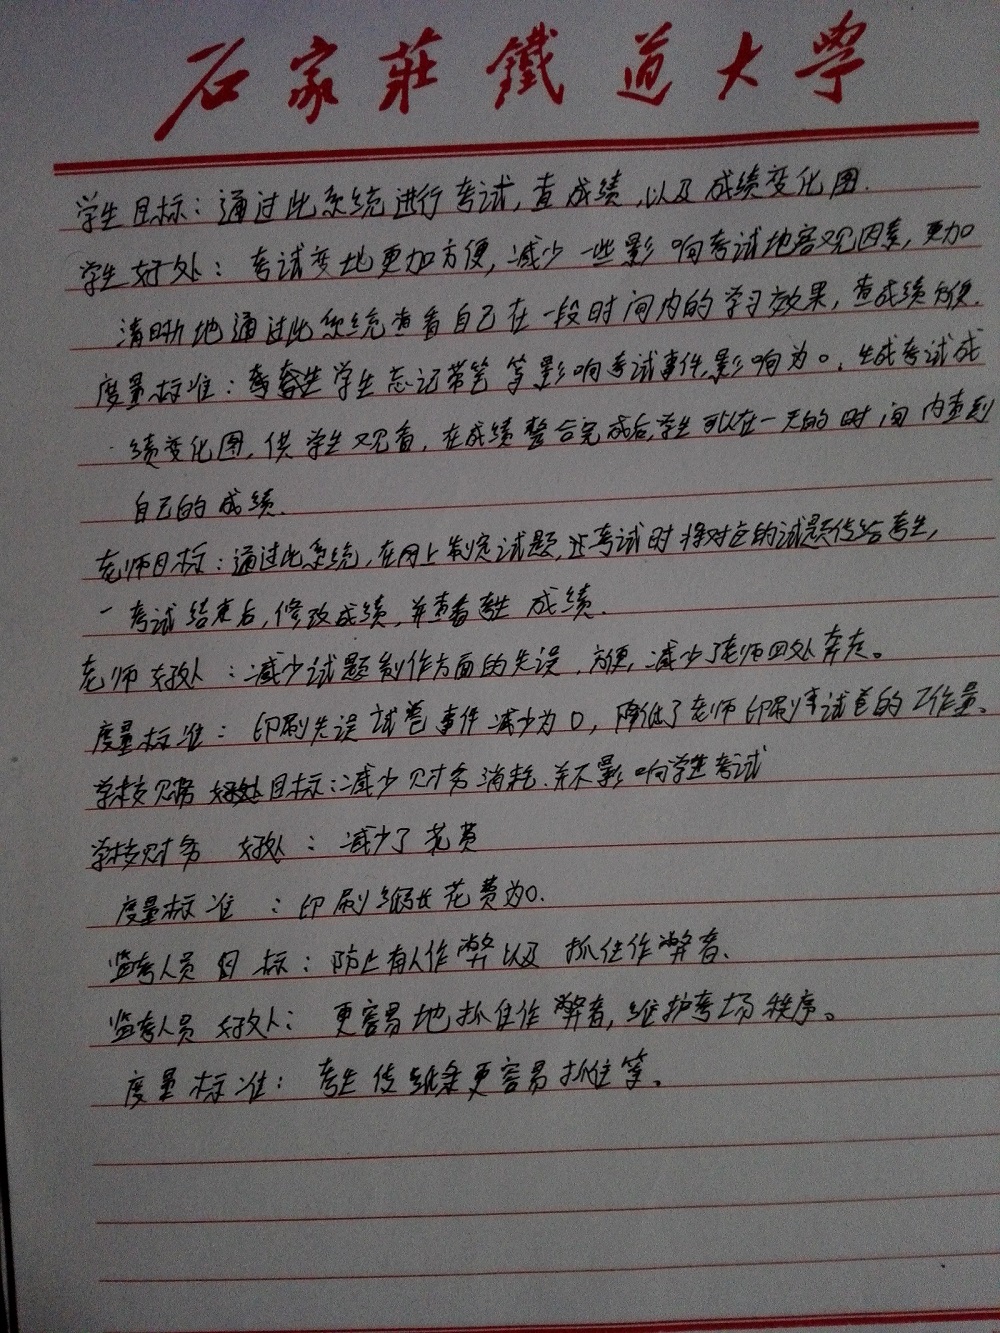 石家莊鐵道大學
学生目标：通过此系统进行考试，查成绩，以及成绩变化图.
学生好处：考试变地更加方便，减少一些影响考试地客观因素，更加
清晰地通过此系统查看自己在一段时间内的学习效果，查成绩方便.
度量标准：学生忘记带笔等影响考试事件影响为0，生成考试成
绩变化图，供学生观看，在成绩整合完成后，学生可以在一天的时间内查到
自己的成绩.
老师目标：通过此系统，在网上制定试题，考试时将对应的试题传给考生，
考试结束后，修改成绩，并查看考生成绩.
老师好处：减少试题制作方面的失误，方便，减少了老师四处奔走。
度量标准：印刷失误试卷事件减少为0，降低了老师印刷试卷的工作量。
学校财务目标：减少财务消耗.并不影响学生考试
学校财务好处：减少了花费
度量标准：印刷花费为0.
监考人员目标：防止有人作弊以及抓住作弊者、
监考人员好处：更容易地抓住作弊者，维护考场秩序。
度量标准：考生传纸条更容易抓住等。